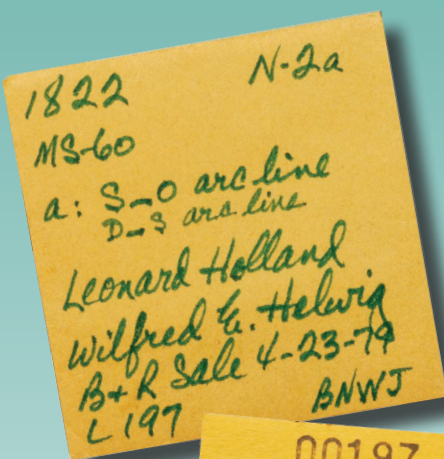 1822 N-2a
MS-60
a: S-O arc line
D-S arc line
Leonard Holland
Wilfred E. Helwig
B+R Sale 4-23-79
L197 BNWJ
00197